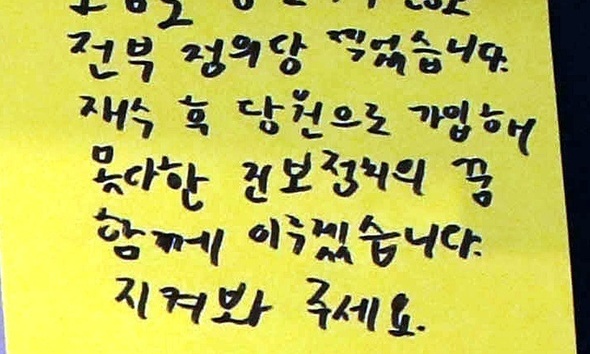 전부 정의당 찍었습니다.
재수 후 당원으로 가입해
못다한 진보정치의 꿈
함께 이루겠습니다.
지켜봐 주세요.